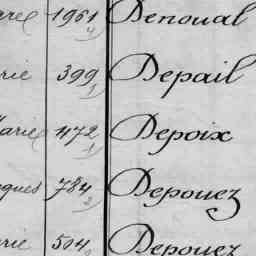 1961 Denoual
rie 399 Depail
Marie 472 Depoix
ques 784 Depouez
rie 504 Depouez